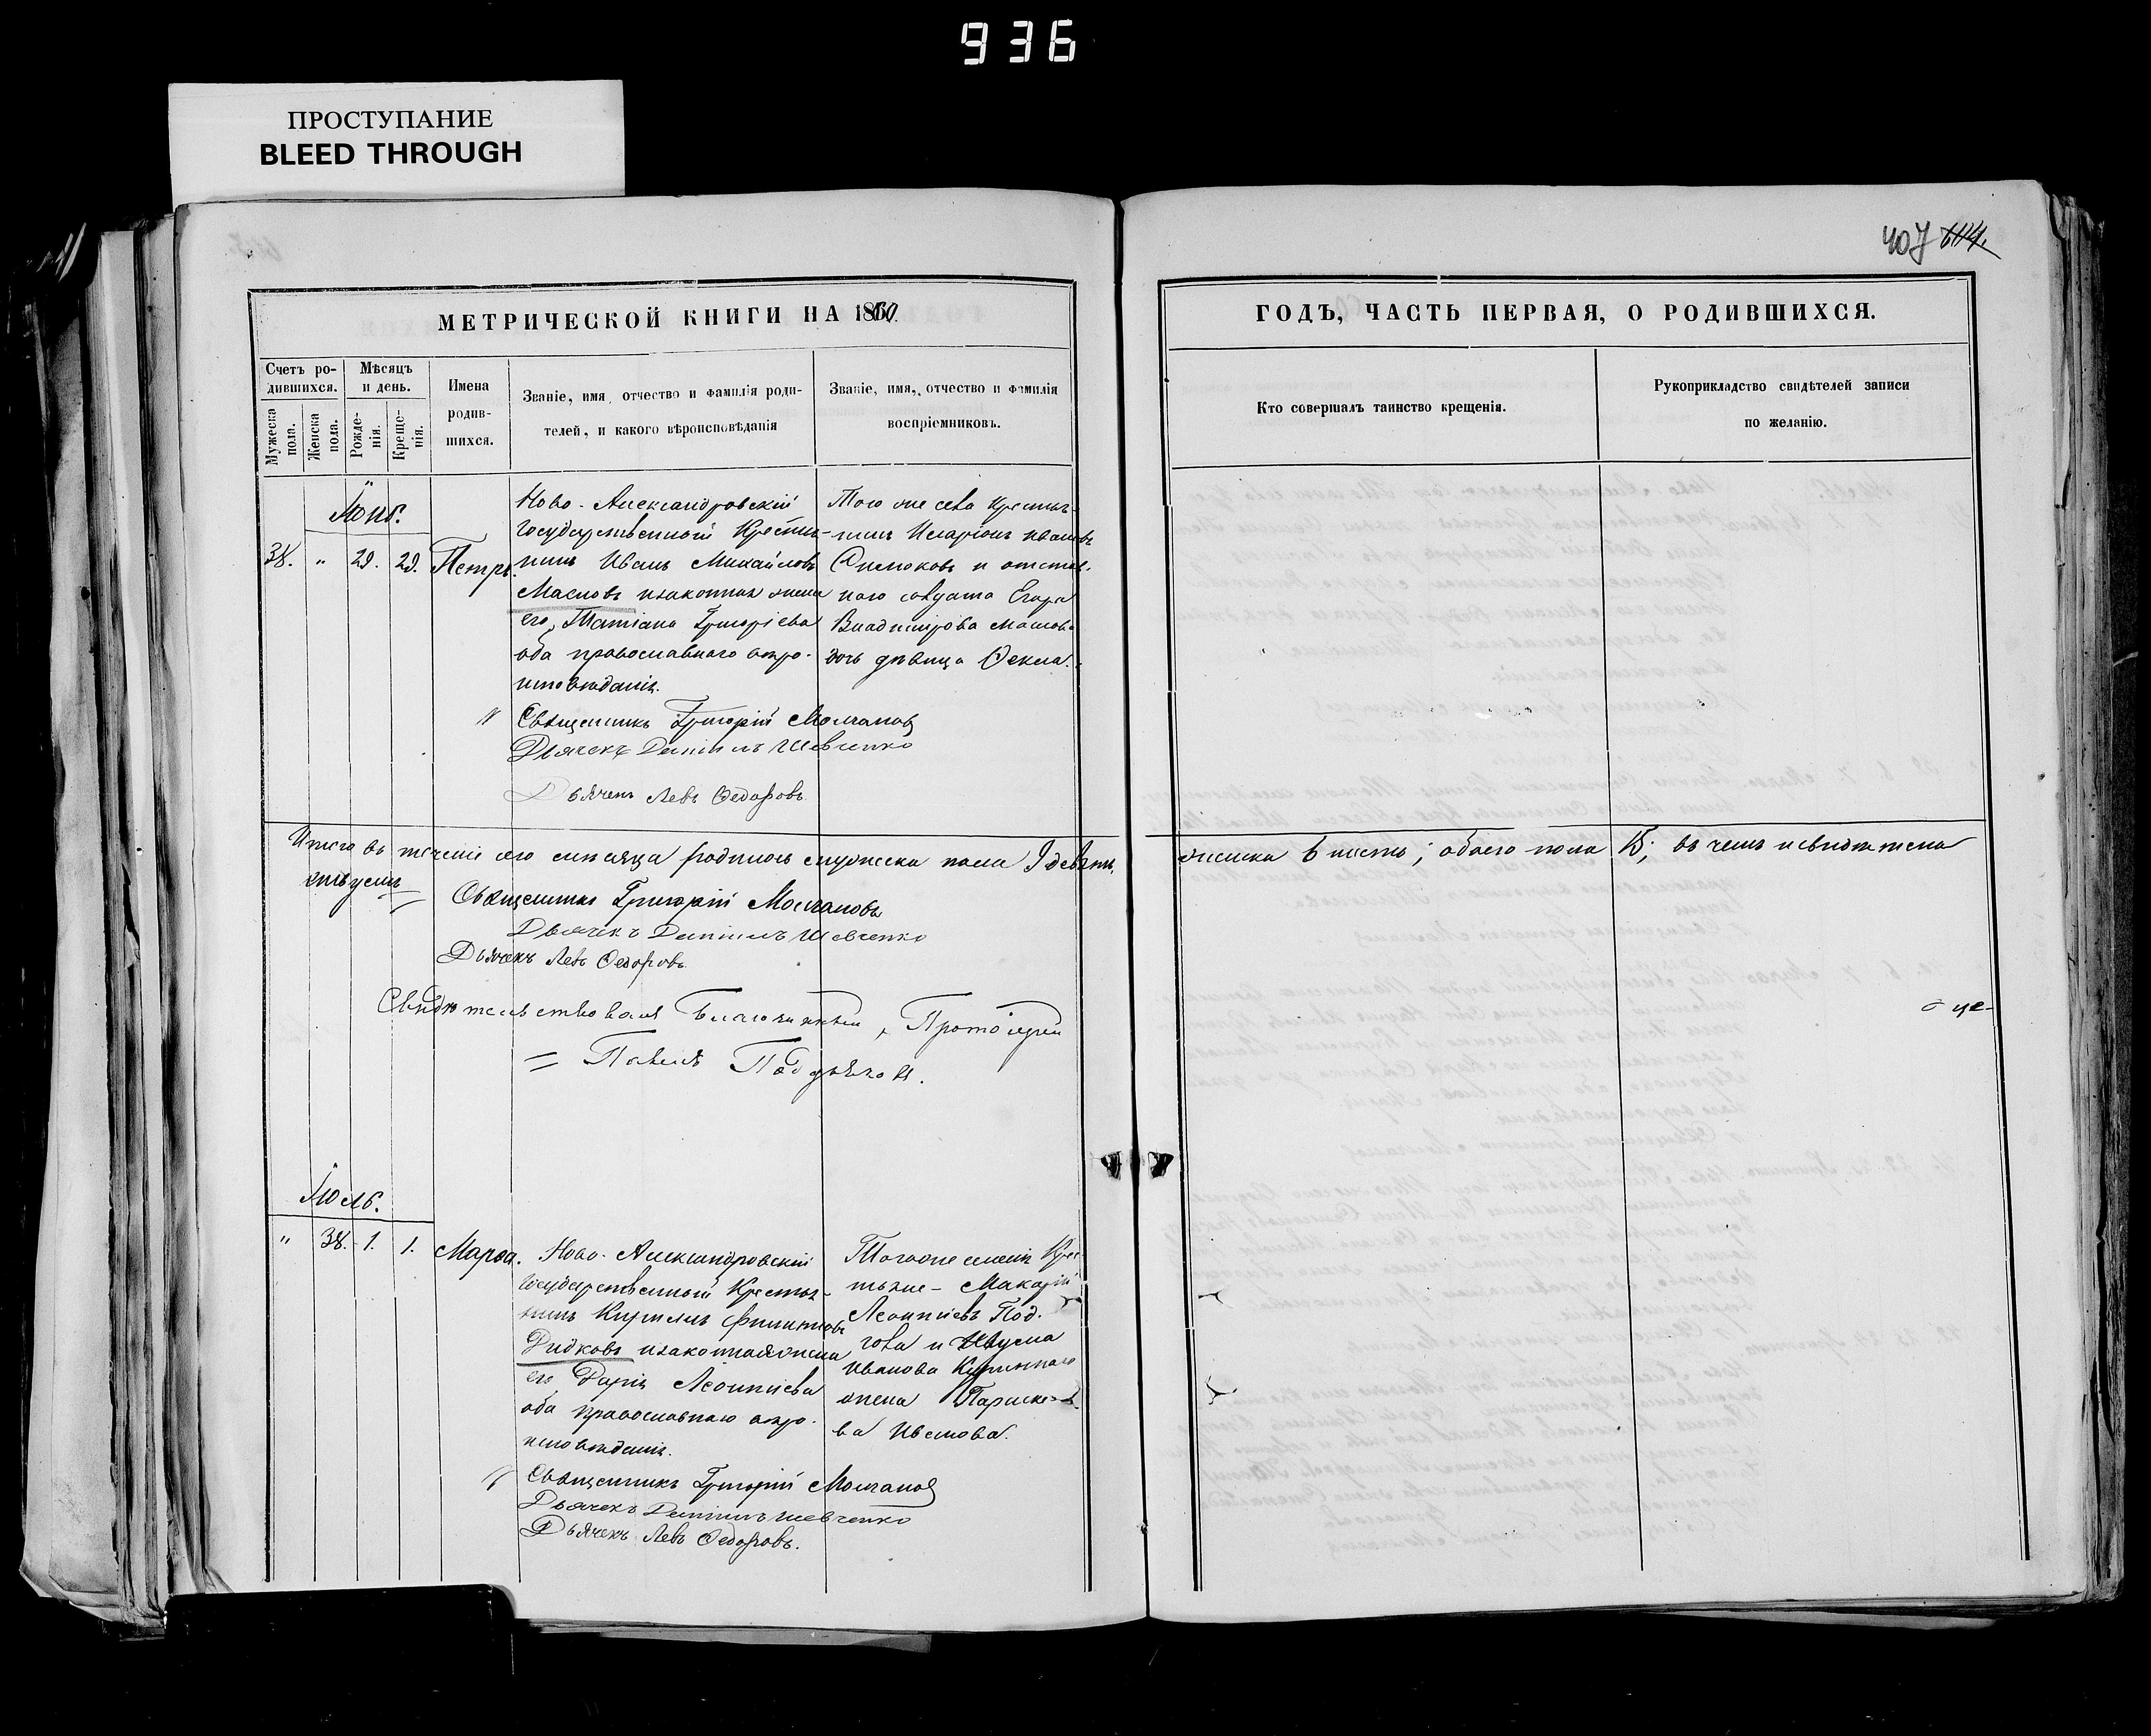 936
ПРОСТУПАНИЕ
BLEED THROUGH
407 614.
МЕТРИЧЕСКОЙ КНИГИ НА 1860.
Счетъ ро-
дившихся.
Мѣсяцъ
и день.
Мужеска пола.
Женска пола.
Рожде-
нія.
Креще-
нія.
Имена
родив-
шихся.
Званіе, имя, отчество и фамилія роди-
телей, и какого вѣроисповѣданія
Званіе, имя, отчество и фамилія
воспріемниковъ.
Іюнь.
38. " 29. 29. Петръ.
Ново-Александровскій
Государственный Крестья-
нинъ Иванъ Михайловъ
Масловъ и законная жена
его, Татіана Григоріева
оба православнаго вѣро-
исповѣданія.
Того же села крестья-
нинъ Иларіонъ Ивановъ
и отстав-
наго солдата Егора
Владимірова
дочь дѣвица Ѳекла.
Священникъ Григорій Молчановъ
Дьячекъ Даніилъ Шевченко
Дьячекъ Левъ Ѳедоровъ
Итого въ теченіе сего мѣсяца родилось мужеска пола 9 девять,
Священникъ Григорій Молчановъ
Дьячекъ Даніилъ Шевченко
Дьячекъ Левъ Ѳедоровъ
Свидѣтельствовалъ Благочинный, Протоіерей
Павелъ
Іюль.
" 38. 1. 1. Марѳа.
Ново-Александровскій
Государственный Крестья-
нинъ Кириллъ Филиповъ
Дидковъ и законная жена
его Дарія Леонтіева
оба православнаго вѣро-
исповѣданія.
Того же селенія Крес-
тьяне - Макарій
Леонтіевъ Под-
гова и Наума
Иванова
жена Параске-
ва Иванова.
Священникъ Григорій Молчановъ
Дьячекъ Даніилъ Шевченко
Дьячекъ Левъ Ѳедоровъ.
ГОДЪ, ЧАСТЬ ПЕРВАЯ, О РОДИВШИХСЯ.
Кто совершалъ таинство крещенія.
Рукоприкладство свидѣтелей записи
по желанію.
женска 6 шесть; обоего пола 15; въ чемъ и свидѣтель